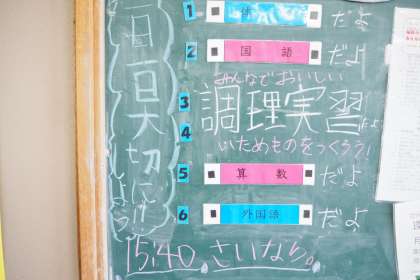 一日一日大切にしよう
1 体育 だよ
2 国語 だよ
みんなでおいしい
3 4 調理実習だよ
いためものをつくろう!
5 算数 だよ
6 外国語 だよ
15:40 さいなら。